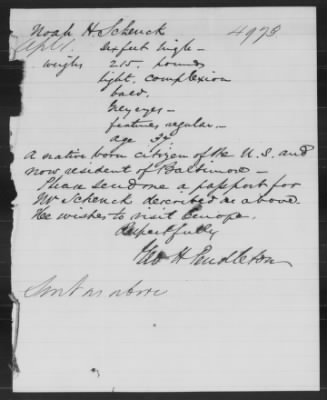 Noah H Schenck 4978
Apl 1. Six feet high —
weighs 215. pounds
light. complexion
bald.
Grey eyes —
features regular —
age
A native born citizen of the U.S. and
now resident of Baltimore —
Please send me a passport for
Mr Schenck described as above
He wishes to visit Europe.
Respectfully
Geo H Pendleton
Sent as above